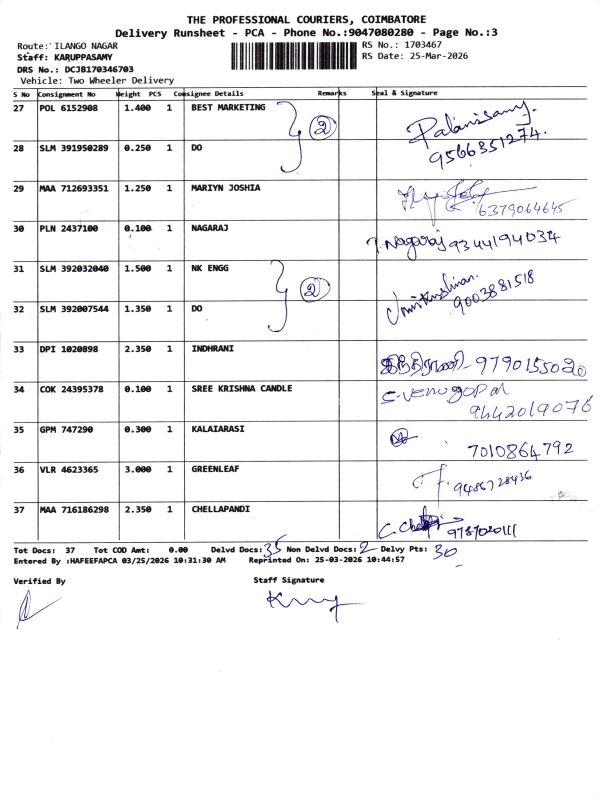 THE PROFESSIONAL COURIERS, COIMBATORE
Delivery Runsheet - PCA - Phone No.:9047080280 - Page No.:3
Route: ILANGO NAGAR RS No.: 1703467
Staff: KARUPPASAMY RS Date: 25-Mar-2026
DRS No.: DCJB170346703
Vehicle: Two Wheeler Delivery
S No Consignment No Weight PCS Consignee Details Remarks Seal & Signature
27 POL 6152908 1.400 1 BEST MARKETING 2 Palanisamy.
9566351274.
28 SLM 391950289 0.250 1 DO
29 MAA 712693351 1.250 1 MARIYN JOSHIA
6379064645
30 PLN 2437100 0.100 1 NAGARAJ J. Nagaraj 9344194034
31 SLM 392032040 1.500 1 NK ENGG 2
9003881518
32 SLM 392007544 1.350 1 DO
33 DPI 1020898 2.350 1 INDHRANI இந்திராணி - 9790155020
34 COK 24395378 0.100 1 SREE KRISHNA CANDLE C. Venugopal
9442019076
35 GPM 747290 0.300 1 KALAIARASI
7010864792
36 VLR 4623365 3.000 1 GREENLEAF 9486728436
37 MAA 716186298 2.350 1 CHELLAPANDI 9787020111
Tot Docs: 37 Tot COD Amt: 0.00 Delvd Docs: 35 Non Delvd Docs: 2 Delvy Pts: 30
Entered By :HAFEEFAPCA 03/25/2026 10:31:30 AM Reprinted On: 25-03-2026 10:44:57
Verified By Staff Signature